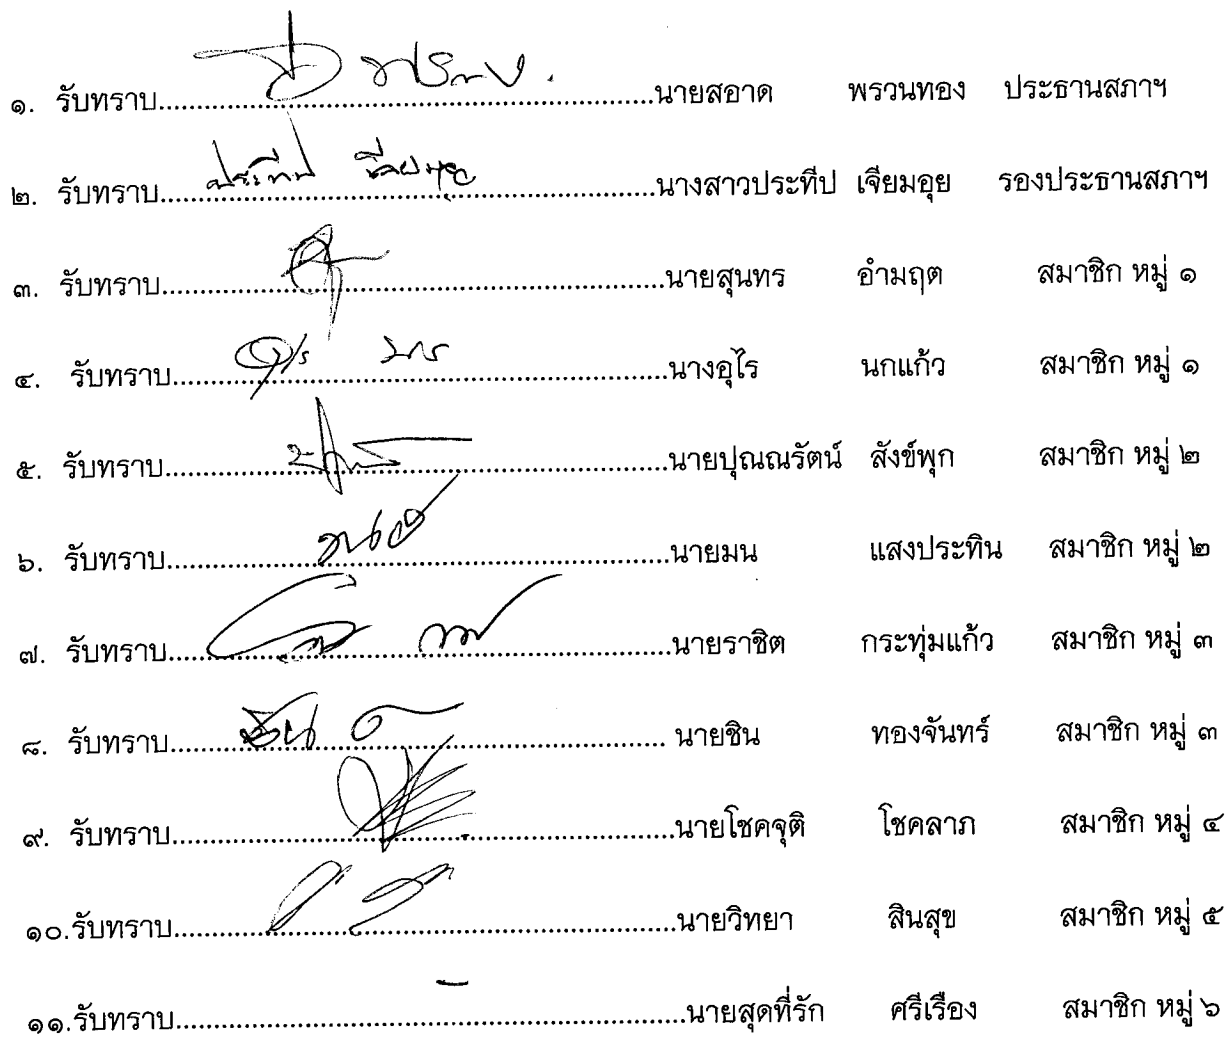 ๑. รับทราบ............นายสอาด พรวนทอง ประธานสภาฯ
๒. รับทราบ ประทีป เจียมอุย ............นางสาวประทีป เจียมอุย รองประธานสภาฯ
๓. รับทราบ............นายสุนทร อำมฤต สมาชิก หมู่ ๑
๔. รับทราบ............นางอุไร นกแก้ว สมาชิก หมู่ ๑
๕. รับทราบ............นายปุณณรัตน์ สังข์พุก สมาชิก หมู่ ๒
๖. รับทราบ............นายมน แสงประทิน สมาชิก หมู่ ๒
๗. รับทราบ............นายราชิต กระทุ่มแก้ว สมาชิก หมู่ ๓
๘. รับทราบ............ นายชิน ทองจันทร์ สมาชิก หมู่ ๓
๙. รับทราบ............นายโชคจุติ โชคลาภ สมาชิก หมู่ ๔
๑๐.รับทราบ............นายวิทยา สินสุข สมาชิก หมู่ ๕
๑๑.รับทราบ............นายสุดที่รัก ศรีเรือง สมาชิก หมู่ ๖